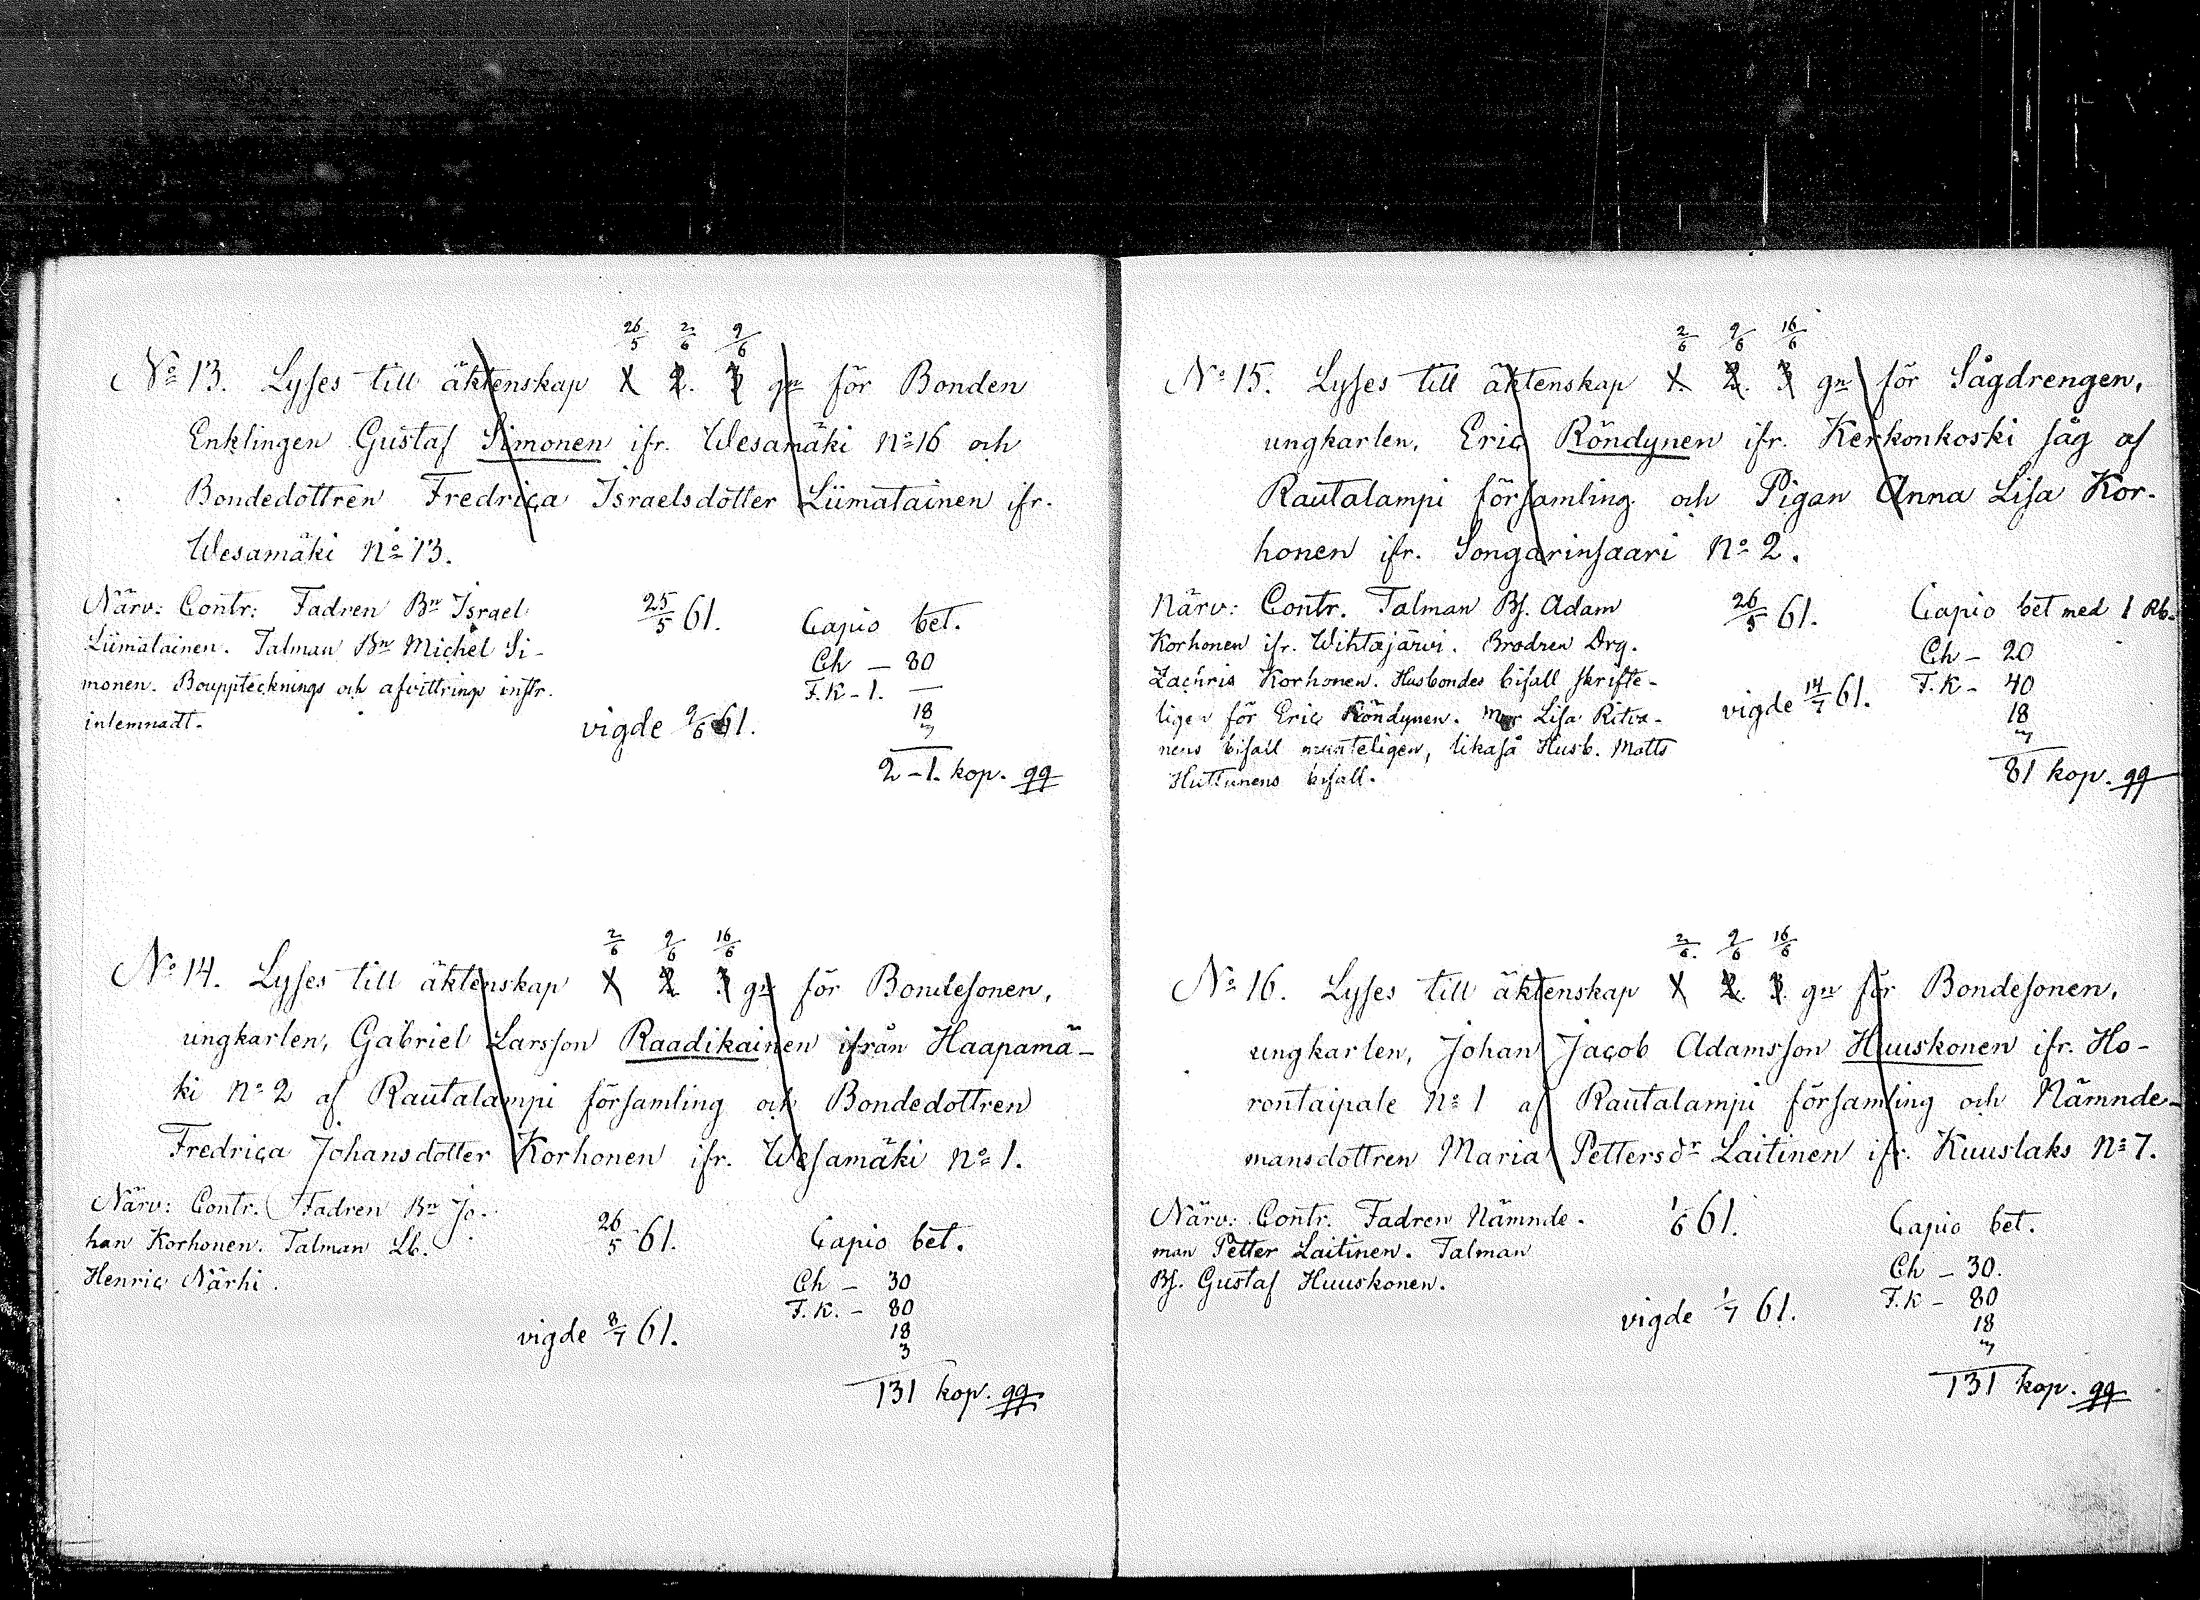 26/5 2/6 9/6
No 13. Lyses till äktenskap 1 2. 3 gn för Bonden
Enklingen Gustaf Simonen ifr. Wesamäki No 16 och
Bondedottren Fredrica Israelsdotter Liimatainen ifr.
Wesamäki No 13.
Närv: Contr: Fadren Bn Israel
Liimatainen. Talman Bn Michel Si-
monen. Bouppteknings och afvittrings instr.
inlemnadt.
25/5 61.
vigde 9/6 61.
Capio bet.
Ch – 80
F.K – 1. —
18
3
2 – 1. kop. gg
2/6 9/6 16/6
No 14. Lyses till äktenskap 1 2 3 gn för Bondesonen,
ungkarlen, Gabriel Larsson Raadikainen ifrån Haapamä-
ki No 2 af Rautalampi församling och Bondedottren
Fredrica Johansdotter Korhonen ifr. Wesamäki No 1.
Närv: Contr. Fadren Bn Jo-
han Korhonen. Talman Lb.
Henric Närhi.
26/5 61.
vigde 8/7 61.
Capio bet.
Ch – 30
F.K. – 80
18
3
131 kop. gg
2/6 9/6 16/6
No 15. Lyses till äktenskap 1. 2. 3 gn för Sågdrengen,
ungkarlen, Eric Röndynen ifr. Kerkonkoski såg af
Rautalampi församling och Pigan Anna Lisa Kor-
honen ifr. Songarinsaari No 2.
Närv: Contr. Talman Bs. Adam
Korhonen ifr. Wihtajärvi. Brodren Drg.
Zachris Korhonen. Husbondes bifall skrifte-
ligen för Eric Röndynen. Mor Lisa Ritva-
nens bifall munteligen, likaså Husb. Matts
Huttunens bifall.
26/5 61.
vigde 14/7 61.
Capio bet med 1 Rb.
Ch – 20
F.K – 40
18
3
81 kop. gg
2/6. 9/6 16/6
No 16. Lyses till äktenskap 1 2. 3. gn för Bondesonen,
ungkarlen, Johan Jacob Adamsson Huuskonen ifr. Ho-
rontaipale No 1 af Rautalampi församling och Nämnde-
mansdottren Maria Pettersdr Laitinen ifr. Kuuslaks No 7.
Närv: Contr. Fadren Nämnde-
man Petter Laitinen. Talman
Bs. Gustaf Huuskonen.
1/6 61.
vigde 1/7 61.
Capio bet.
Ch – 30.
F.K – 80
18
3
131 kop. gg